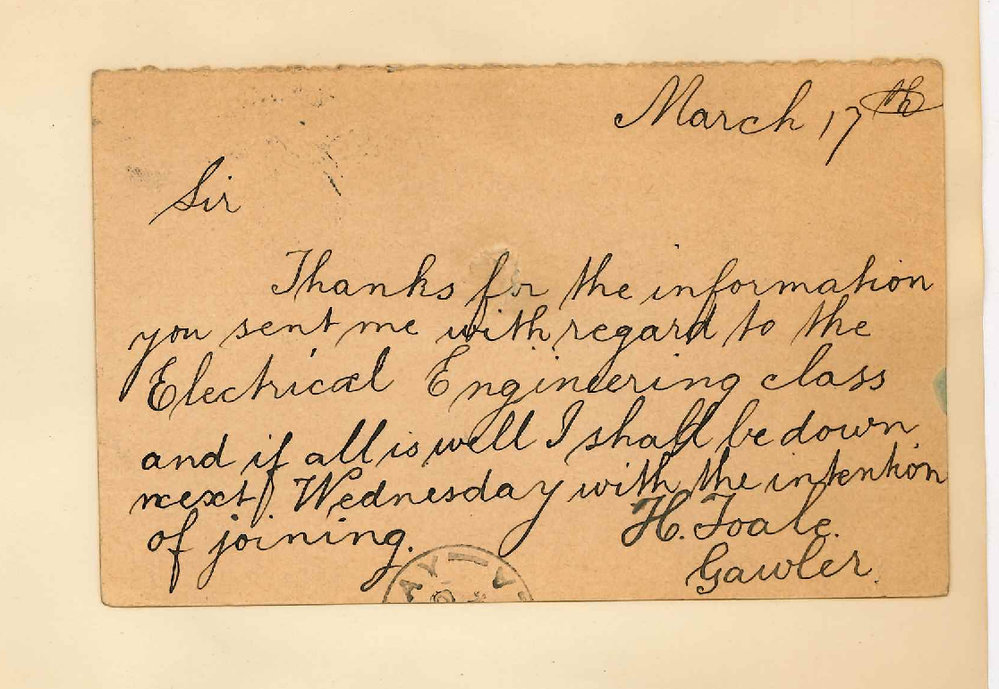 March 17th
Sir
Thanks for the information
you sent me with regard to the
Electrical Engineering class
and if all is well I shall be down
next Wednesday with the intention
of joining.
H. Toale.
Gawler.
AY